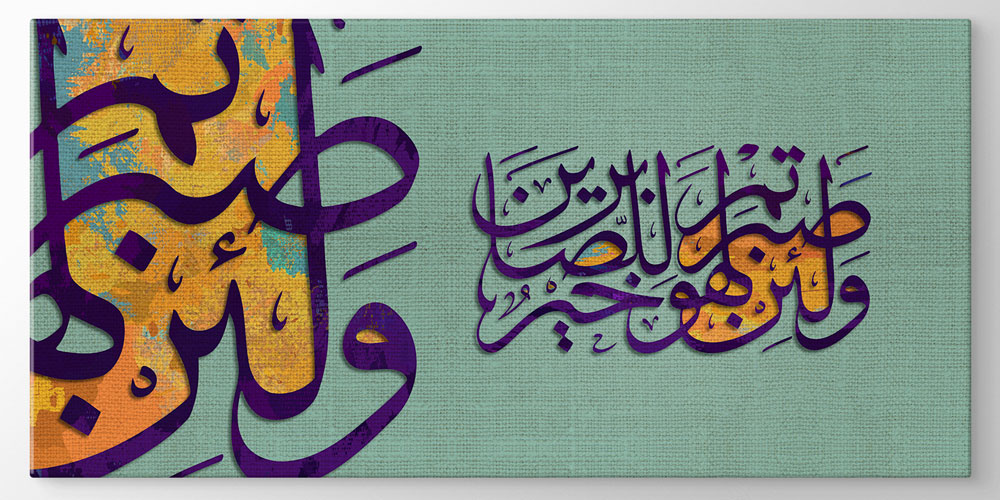 وَلَئِن صَبَرْتُمْ لَهُوَ خَيْرٌ لِّلصَّابِرِينَ
ولئن صبرتم لهو